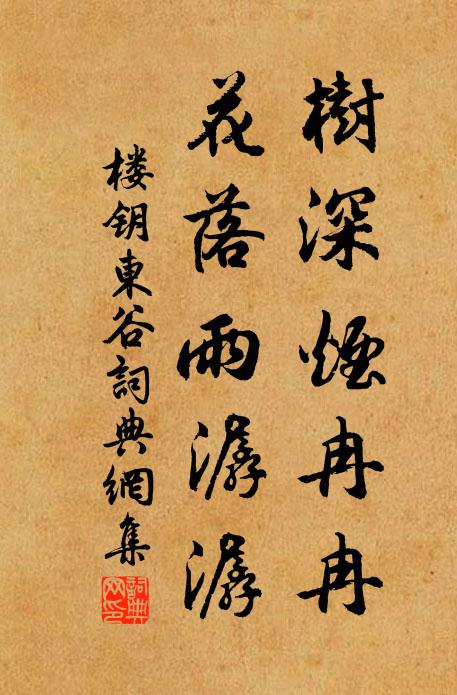 樹深煙冉冉
花落雨潺潺
楼钥東谷詞典網集
詞典网印